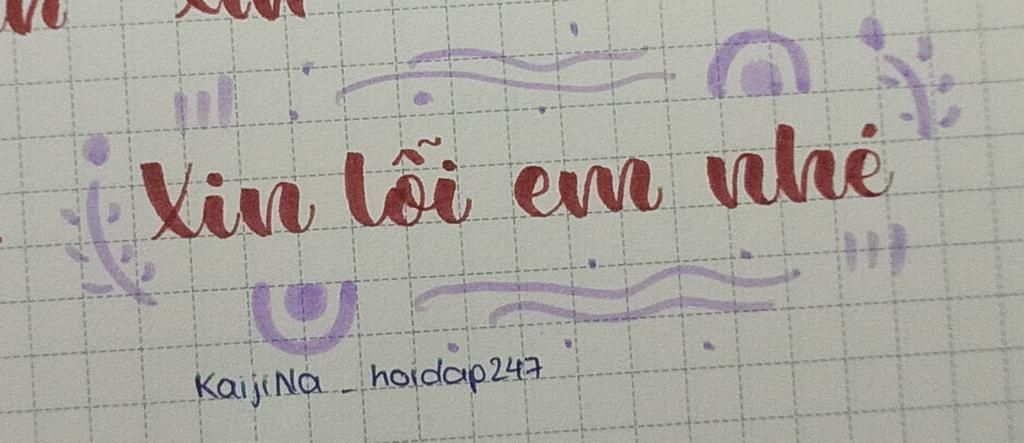 Xin lỗi em nhé
KaijiNa _ hoidap247